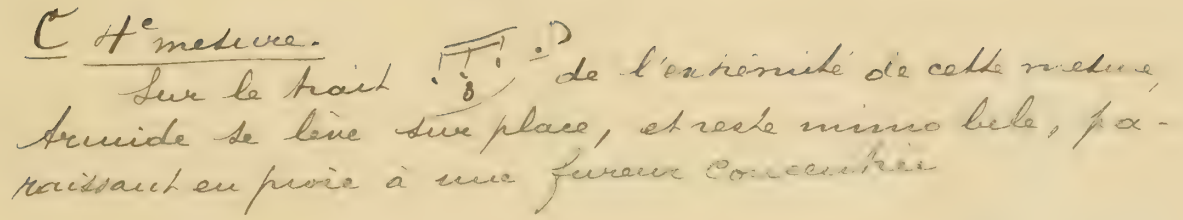 C 4e mesure.
Sur le trait de l'extrémité de cette mesure,
Armide se lève sur place, et reste immobile, pa-
raissant en proie à une fureur concentrée